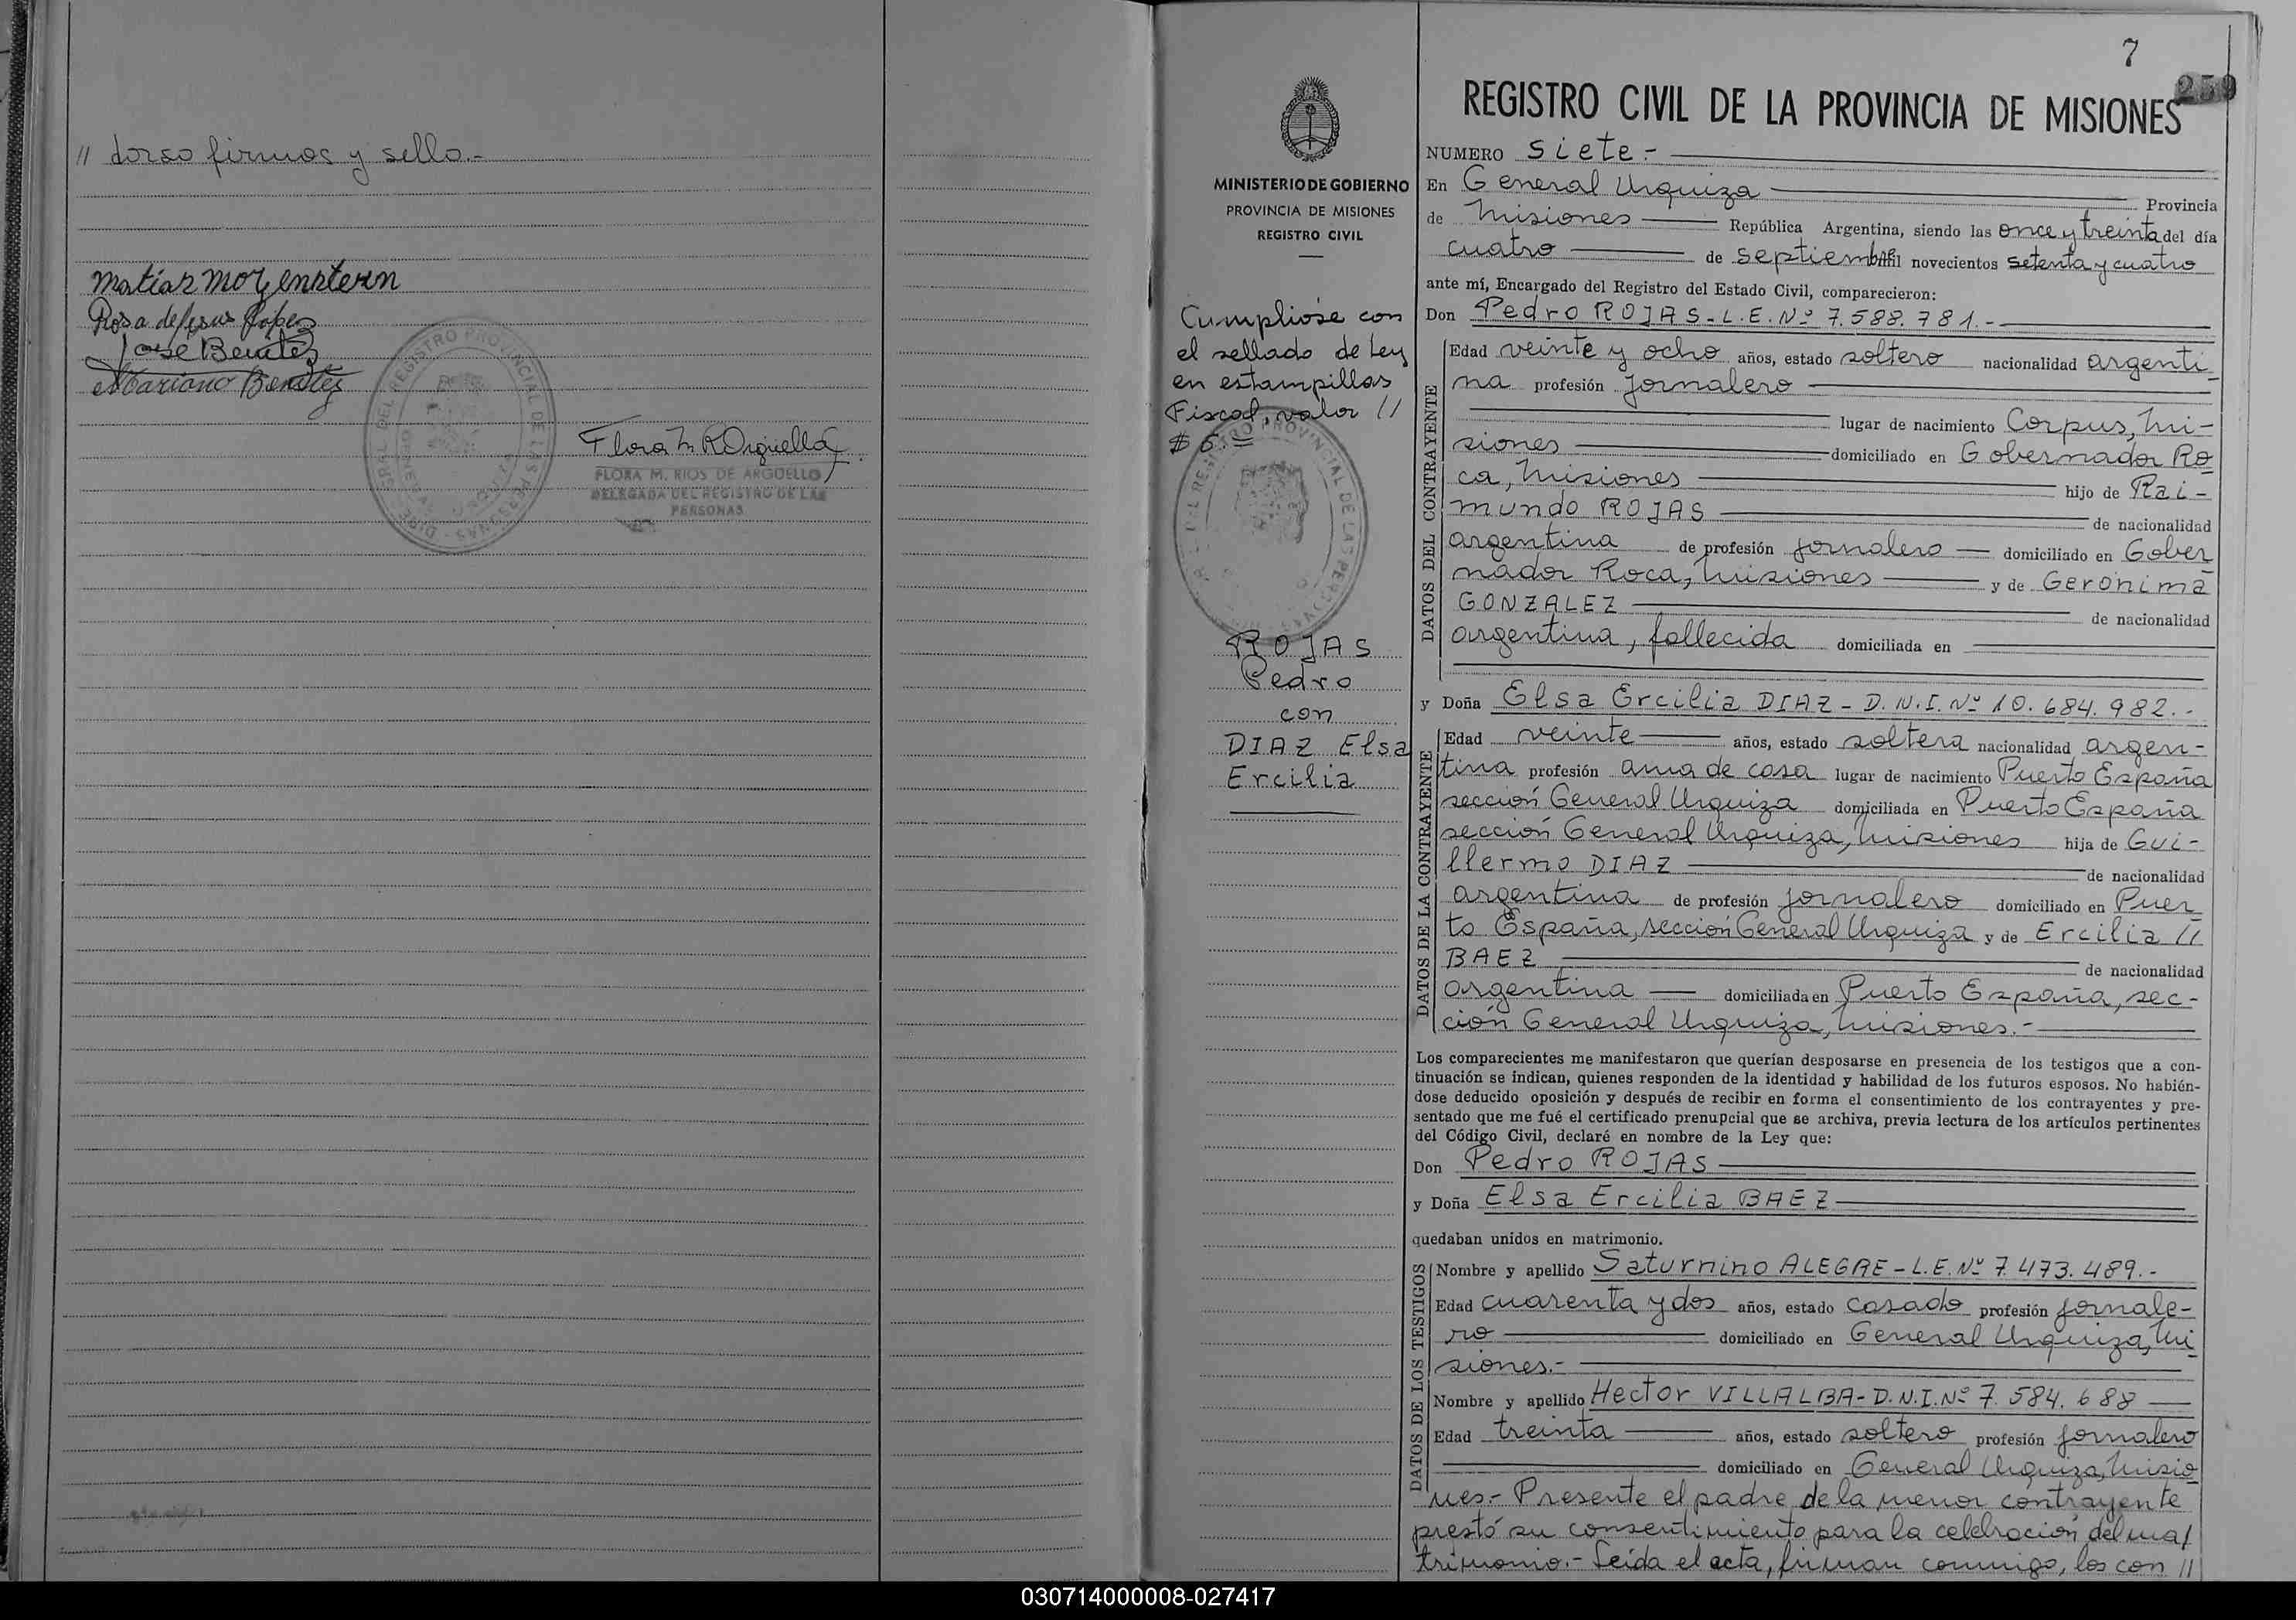 // dorso firmas y sello.-
Matías Morgenstern
Rosa de Jesus López
José Benitez
Mariano Benitez
Flora M R Argüello
FLORA M. RIOS DE ARGUELLO
DELEGADA DEL REGISTRO DE LAS
PERSONAS
7
259
REGISTRO CIVIL DE LA PROVINCIA DE MISIONES
MINISTERIO DE GOBIERNO
PROVINCIA DE MISIONES
REGISTRO CIVIL
Cumplióse con
el sellado de Ley
en estampillas
Fiscal, valor //
$ 6.=
ROJAS
Pedro
con
DIAZ Elsa
Ercilia
NUMERO siete.-
En General Urquiza Provincia
de Misiones República Argentina, siendo las once y treinta del día
cuatro de septiembre mil novecientos setenta y cuatro
ante mí, Encargado del Registro del Estado Civil, comparecieron:
Don Pedro ROJAS - L.E. Nº 7.588.781.-
DATOS DEL CONTRAYENTE
Edad veinte y ocho años, estado soltero nacionalidad argenti-
na profesión jornalero
lugar de nacimiento Corpus, Mi-
siones domiciliado en Gobernador Ro
ca, Misiones hijo de Rai-
mundo ROJAS de nacionalidad
argentina de profesión jornalero domiciliado en Gober
nador Roca, Misiones y de Gerónima
GONZALEZ de nacionalidad
argentina, fallecida domiciliada en
y Doña Elsa Ercilia DIAZ - D.N.I. Nº 10.684.982.-
DATOS DE LA CONTRAYENTE
Edad veinte años, estado soltera nacionalidad argen-
tina profesión ama de casa lugar de nacimiento Puerto España
sección General Urquiza domiciliada en Puerto España
sección General Urquiza, Misiones hija de Gui-
llermo DIAZ de nacionalidad
argentina de profesión jornalero domiciliado en Puer
to España, sección General Urquiza y de Ercilia //
BAEZ de nacionalidad
argentina domiciliada en Puerto España, sec-
ción General Urquiza, Misiones.-
Los comparecientes me manifestaron que querían desposarse en presencia de los testigos que a con-
tinuación se indican, quienes responden de la identidad y habilidad de los futuros esposos. No habién-
dose deducido oposición y después de recibir en forma el consentimiento de los contrayentes y pre-
sentado que me fué el certificado prenupcial que se archiva, previa lectura de los artículos pertinentes
del Código Civil, declaré en nombre de la Ley que:
Don Pedro ROJAS
y Doña Elsa Ercilia BAEZ
quedaban unidos en matrimonio.
DATOS DE LOS TESTIGOS
Nombre y apellido Saturnino ALEGRE - L.E. Nº 7.473.489.-
Edad cuarenta y dos años, estado casado profesión jornale-
ro domiciliado en General Urquiza, Mi
siones.-
Nombre y apellido Hector VILLALBA - D.N.I. Nº 7.584.688
Edad treinta años, estado soltero profesión jornalero
domiciliado en General Urquiza, Misio
nes.- Presente el padre de la menor contrayente
prestó su consentimiento para la celebración del ma/
trimonio.- Leída el acta, firman conmigo, los con //
030714000008-027417